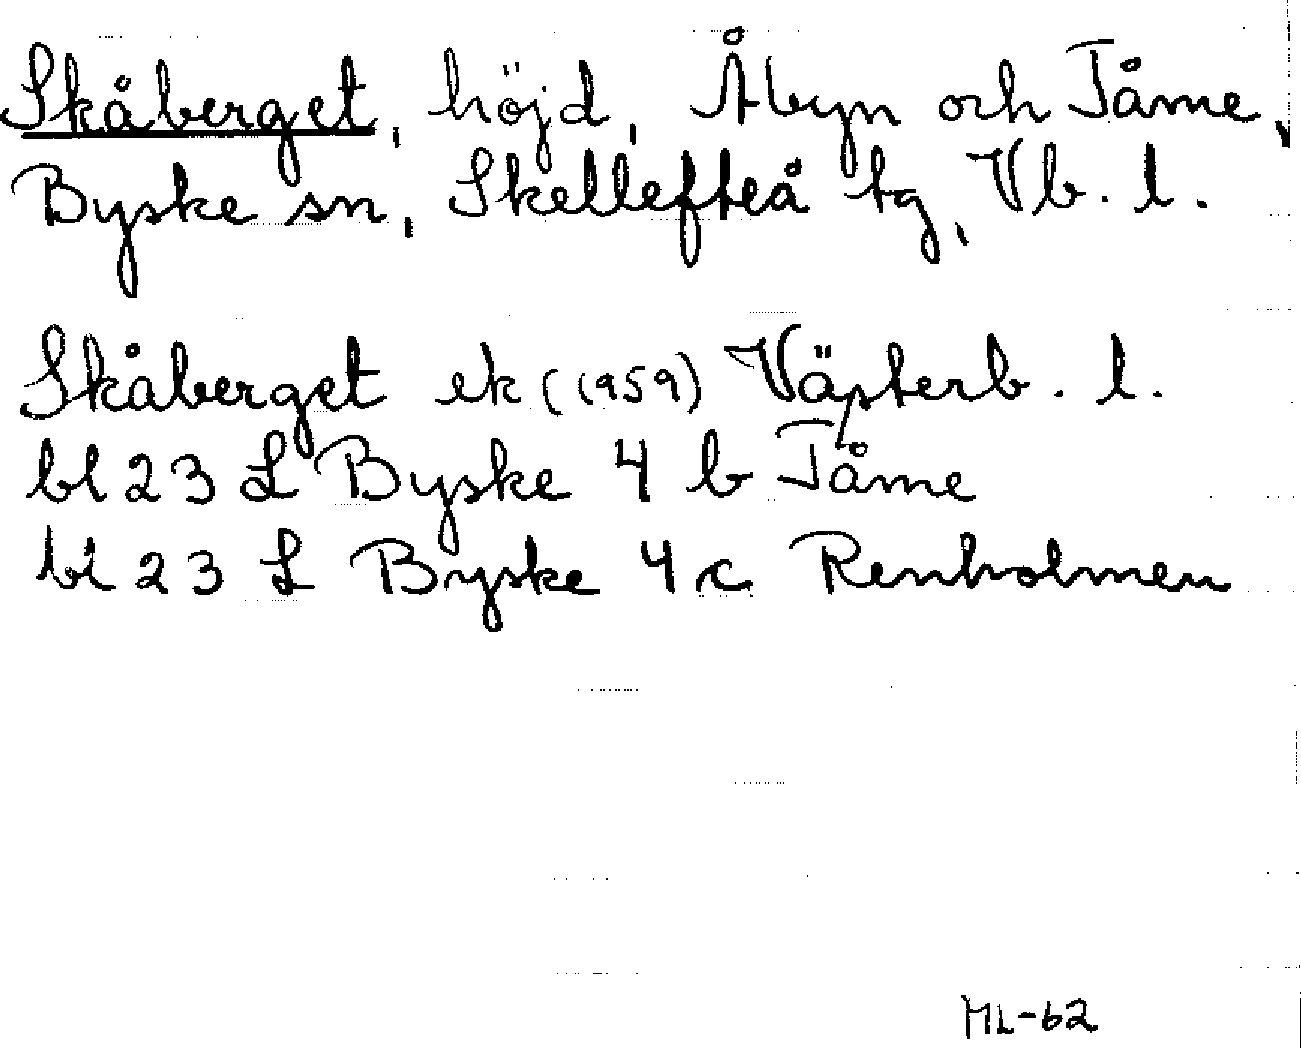 Skåberget, höjd, Åbyn och Tåme,
Byske sn, Skellefteå tg, Vb. l.
Skåberget ek (1959) Västerb. l.
bl 23 L Byske 4 b Tåme
bl 23 L Byske 4 c Renholmen
ML-62